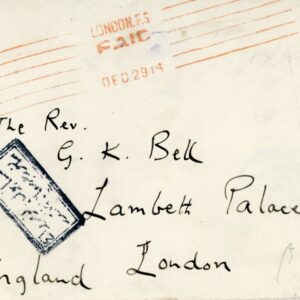 LONDON. F.S.
PAID
DEC 29 14
The Rev.
G. K. Bell
Lambeth Palace
London
England